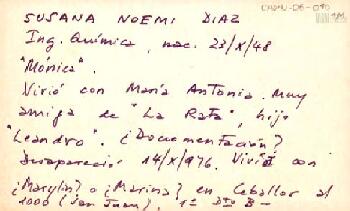 SUSANA NOEMI DIAZ
Ing. Química, nac. 23/X/48
"Mónica".
Vivió con María Antonia. Muy
amiga de "La Rata", hijo
"Leandro". ¿Documentación?
Desapareció 14/X/976. Vivió con
¿Marylin? o ¿Marina? en Ceballos al
1000 (San Juan). 1º Dto B-